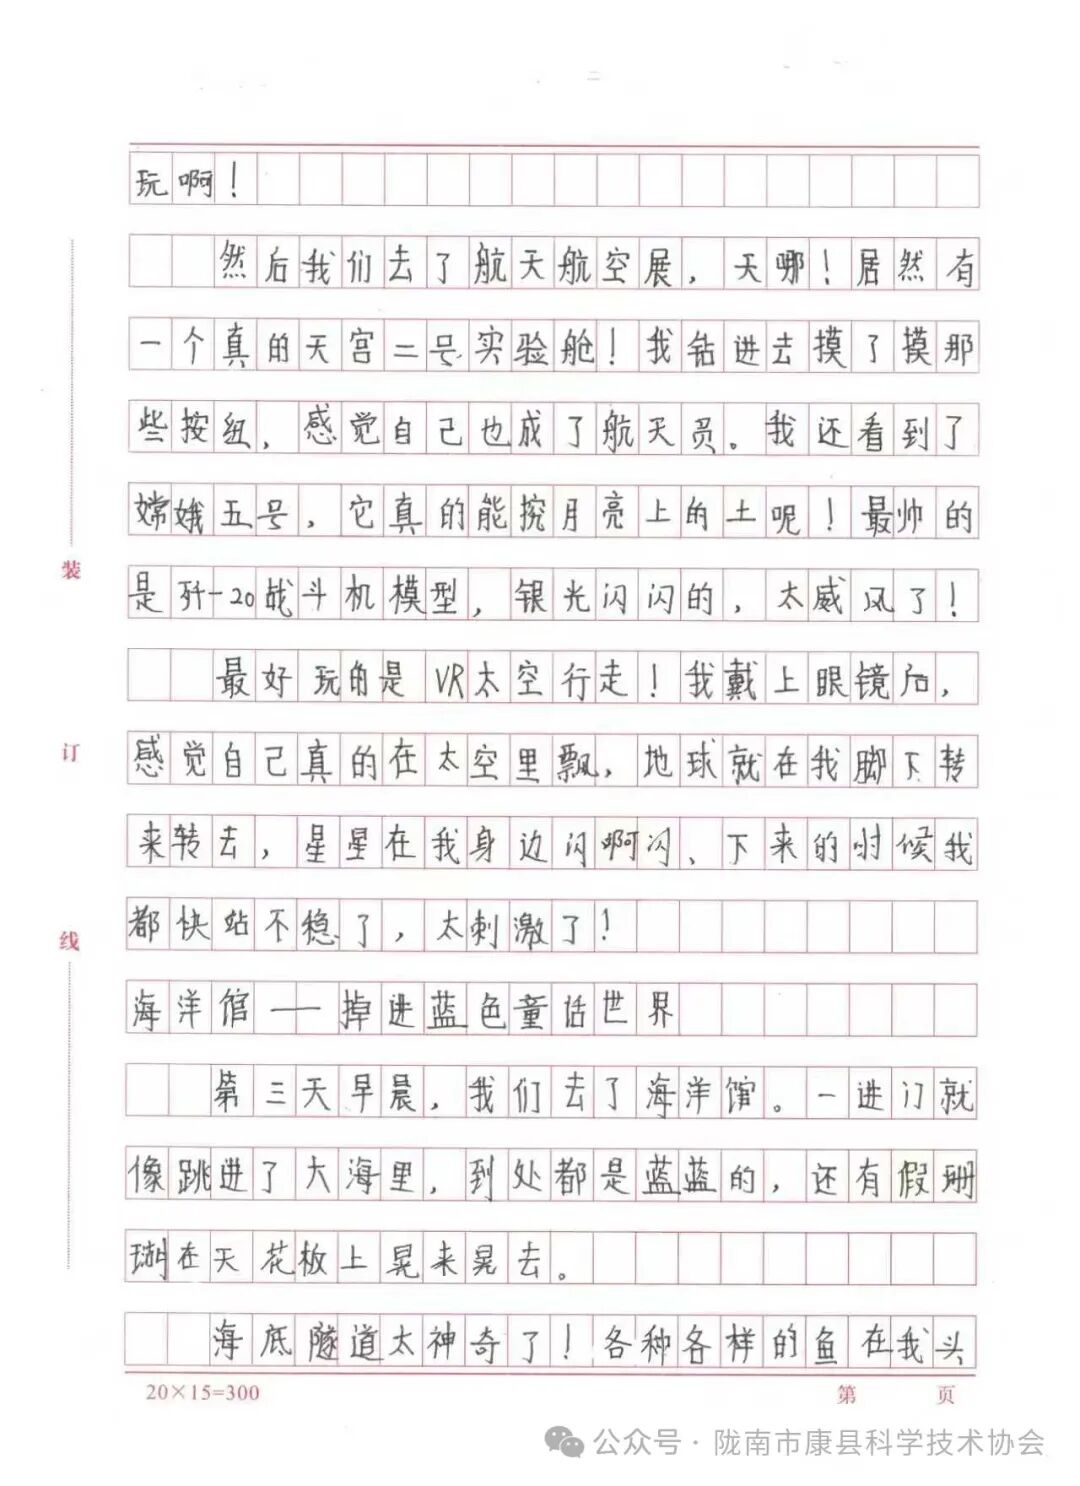 玩啊！
然后我们去了航天航空展，天哪！居然有
一个真的天宫二号实验舱！我钻进去摸了摸那
些按纽，感觉自己也成了航天员。我还看到了
嫦娥五号，它真的能挖月亮上的土呢！最帅的
是歼-20战斗机模型，银光闪闪的，太威风了！
最好玩的是VR太空行走！我戴上眼镜后，
感觉自己真的在太空里飘，地球就在我脚下转
来转去，星星在我身边闪啊闪、下来的时候我
都快站不稳了，太刺激了！
海洋馆——掉进蓝色童话世界
第三天早晨，我们去了海洋馆。一进门就
像跳进了大海里，到处都是蓝蓝的，还有假珊
瑚在天花板上晃来晃去。
海底隧道太神奇了！各种各样的鱼在我头
装
订
线
20×15=300
第 页
公众号·陇南市康县科学技术协会